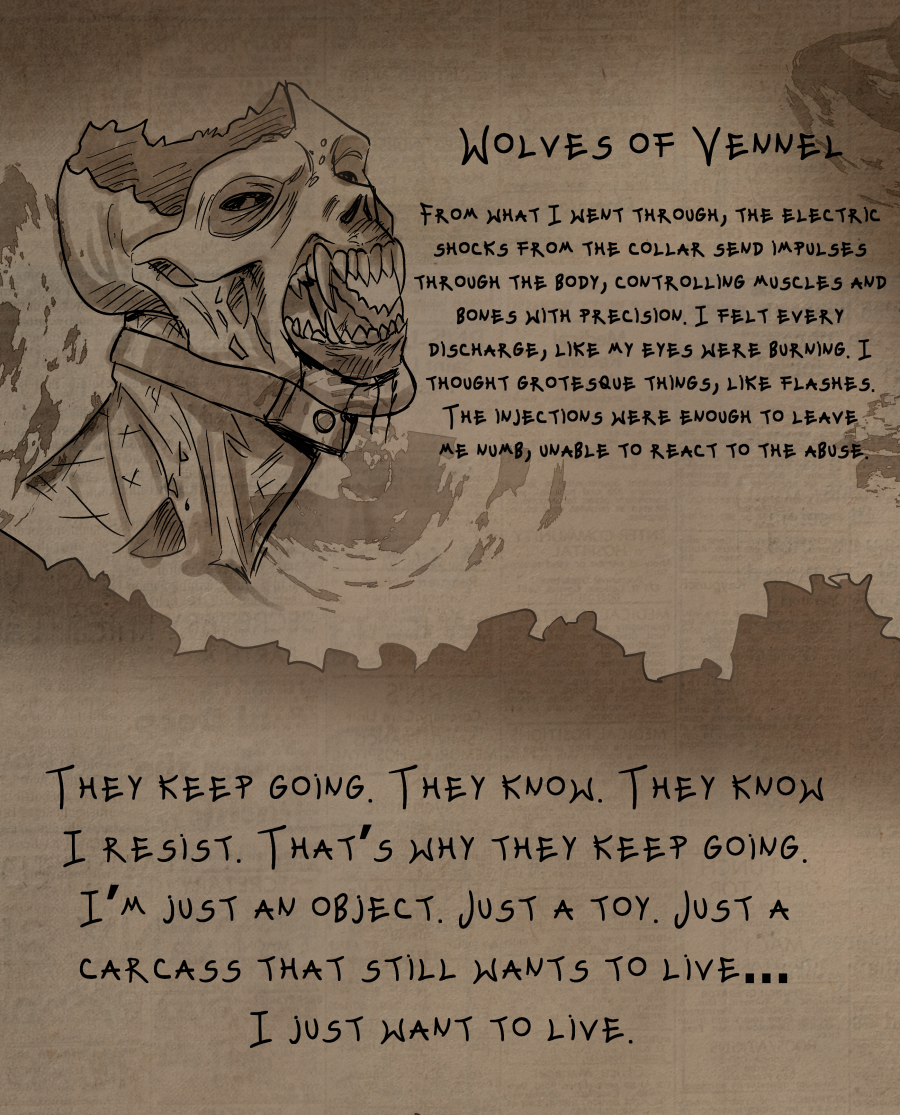 Wolves of Vennel
From what I went through, the electric
shocks from the collar send impulses
through the body, controlling muscles and
bones with precision. I felt every
discharge, like my eyes were burning. I
thought grotesque things, like flashes.
The injections were enough to leave
me numb, unable to react to the abuse.
They keep going. They know. They know
I resist. That's why they keep going.
I'm just an object. Just a toy. Just a
carcass that still wants to live...
I just want to live.